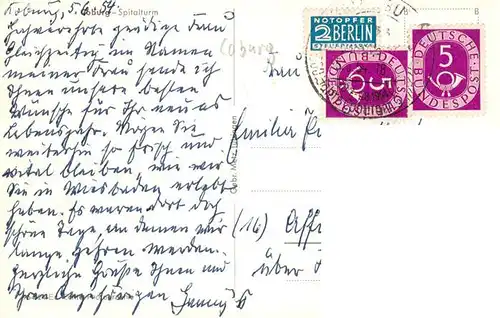 Coburg – Spitalturm
Coburg, 5.6.54.
Sehr verehrte gnädige Frau
Gleichzeitig im Namen
meiner Frau sende ich
Ihnen unsere besten
Wünsche für Ihr neues
Lebensjahr. Mögen Sie
weiterhin so frisch und
vital bleiben, wie wir
Sie in Wiesbaden erlebt
haben. Es waren dort doch
schöne Tage, an denen wir
lange zehren werden.
Herzliche Grüße Ihnen und
Ihren Angehörigen
Coburg
Gebr. Metz, Tübingen
NOTOPFER
2 BERLIN
STEUERMARKE
DEUTSCHE BUNDESPOST
5
DEUTSCHE BUNDESPOST
5
8
Frau
Emilie
(16)
über